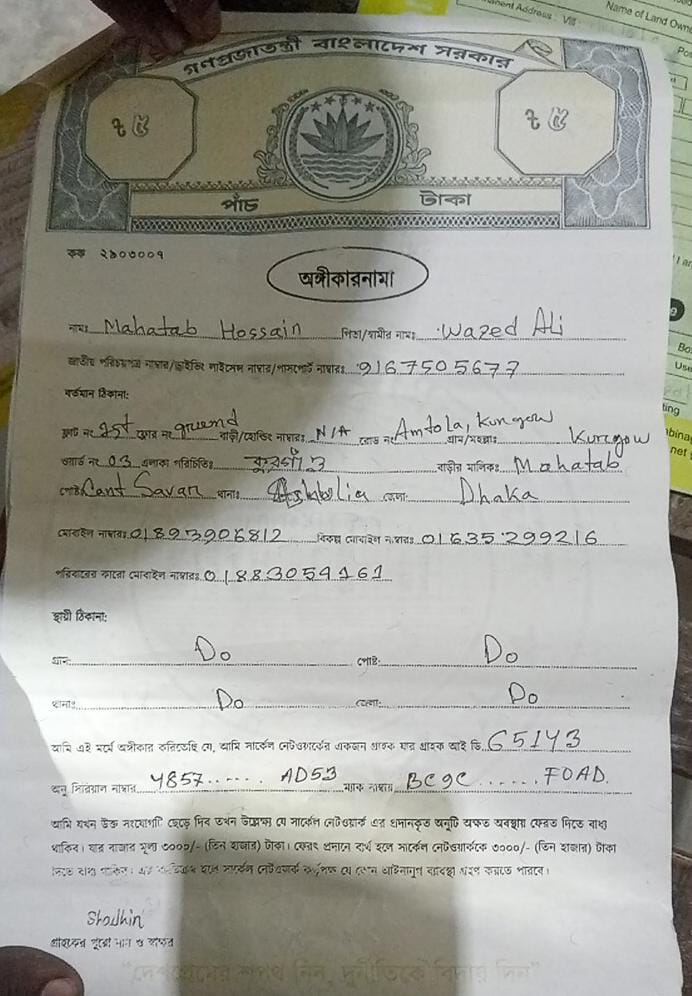 anent Address : Vill
Name of Land Own
Pos
গণপ্রজাতন্ত্রী বাংলাদেশ সরকার
৳ ৫ ৳ ৫
পাঁচ টাকা
কক ২৯০৩০০৭
অঙ্গীকারনামা
নামঃ Mahatab Hossain পিতা/স্বামীর নামঃ Wazed Ali
জাতীয় পরিচয়পত্র নাম্বার/ড্রাইভিং লাইসেন্স নাম্বার/পাসপোর্ট নাম্বারঃ 9167505677
বর্তমান ঠিকানা:
ফ্লাট নং 1st ফ্লোর নং gruend বাড়ী/হোল্ডিং নাম্বারঃ N/A রোড নং Amtola, Kurgow গ্রাম/মহল্লাঃ Kurgow
ওয়ার্ড নং 03 এলাকা পরিচিতিঃ কুরগাঁও বাড়ীর মালিকঃ Mahatab
পোষ্টঃ Cant Savar থানাঃ Ashulia জেলাঃ Dhaka
মোবাইল নাম্বারঃ 01893906812 বিকল্প মোবাইল নাম্বারঃ 01635299216
পরিবারের কারো মোবাইল নাম্বারঃ 01883059161
স্থায়ী ঠিকানা:
গ্রামঃ Do পোষ্টঃ Do
থানাঃ Do জেলাঃ Do
আমি এই মর্মে অঙ্গীকার করিতেছি যে, আমি সার্কেল নেটওয়ার্কের একজন গ্রাহক যার গ্রাহক আই ডি 65143
অনু সিরিয়াল নাম্বার 4857...... AD53 ম্যাক নাম্বার BC9C ...... FOAD.
আমি যখন উক্ত সংযোগটি ছেড়ে দিব তখন উল্লেখ্য যে সার্কেল নেটওয়ার্ক এর প্রদানকৃত অনুটি অক্ষত অবস্থায় ফেরত দিতে বাধ্য
থাকিব। যার বাজার মূল্য ৩০০০/- (তিন হাজার) টাকা। ফেরৎ প্রদানে ব্যর্থ হলে সার্কেল নেটওয়ার্ককে ৩০০০/- (তিন হাজার) টাকা
দিতে বাধ্য থাকিব। এর ব্যতিক্রম হলে সার্কেল নেটওয়ার্ক কর্তৃপক্ষ যে কোন আইনানুগ ব্যবস্থা গ্রহণ করতে পারবে।
Shadhin
গ্রাহকের পুরো নাম ও স্বাক্ষর
"দেশপ্রেমের শপথ নিন, দুর্নীতিকে বিদায় দিন"